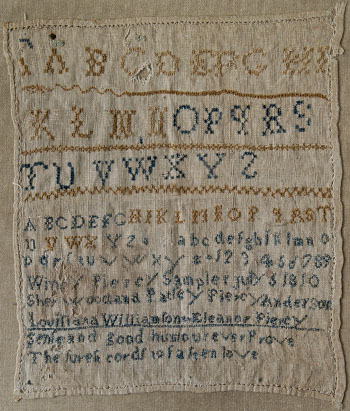 A B C D E F G H I
K L M N O P Q R S
T U V W X Y Z
A B C D E F G H I K L M N O P Q R S T
U V W X Y Z a b c d e f g h i k l m n o
p q r s t u v w x y z 1 2 3 4 5 6 7 8 9
Winey Piercy Sampler July 6 1810
Sherwood and Patley Piercy Anderson
Louisiana Williamson Eleanor Piercy
Sense and good humour ever Prove
The surest cords to fasten love